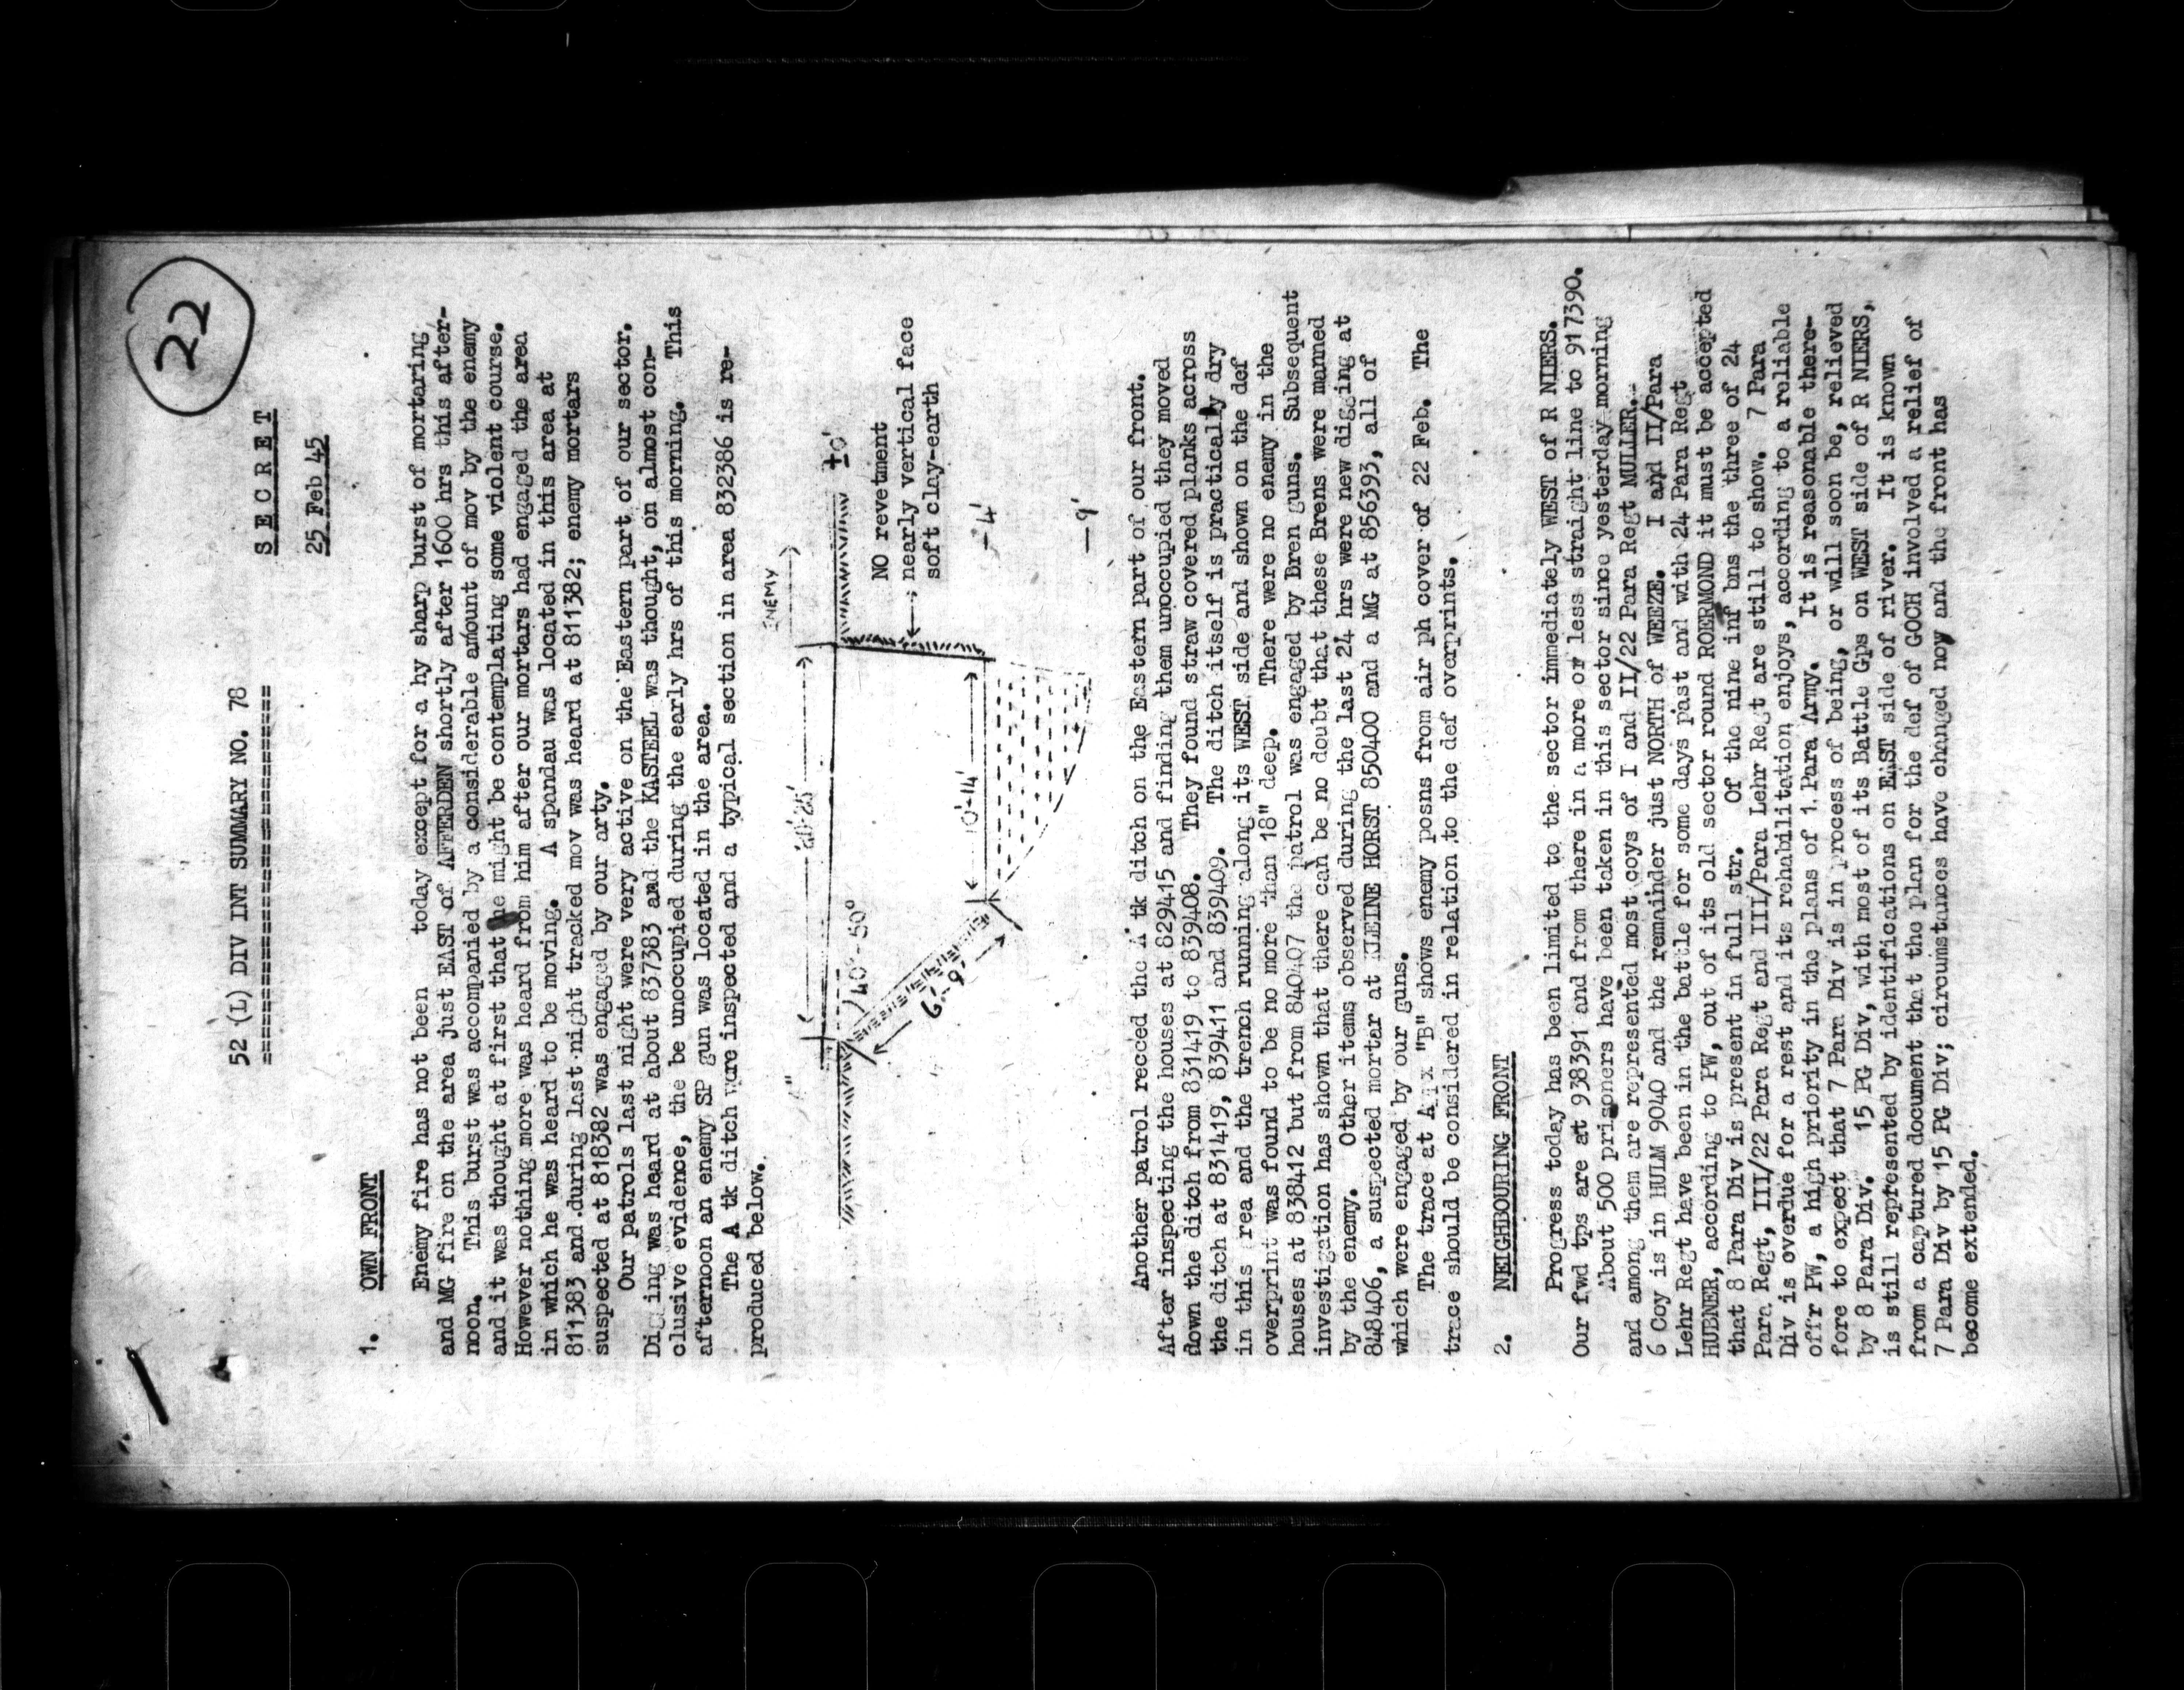 22
52 (L) DIV INT SUMMARY NO. 78
=============================
S E C R E T
25 Feb 45
1. OWN FRONT
Enemy fire has not been today except for a hy sharp burst of mortaring
and MG fire on the area just EAST of AFFERDEN shortly after 1600 hrs this after-
noon. This burst was accompanied by a considerable amount of mov by the enemy
and it was thought at first that he might be contemplating some violent course.
However nothing more was heard from him after our mortars had engaged the area
in which he was heard to be moving. A spandau was located in this area at
811383 and during last night tracked mov was heard at 811382; enemy mortars
suspected at 818382 was engaged by our arty.
Our patrols last night were very active on the Eastern part of our sector.
Digging was heard at about 837383 and the KASTEEL was thought, on almost con-
clusive evidence, the be unoccupied during the early hrs of this morning. This
afternoon an enemy SP gun was located in the area.
The A tk ditch were inspected and a typical section in area 832386 is re-
produced below.
ENEMY
20'-25'
±0'
40°-50°
6'-9'
10'-14'
NO revetment
nearly vertical face
soft clay-earth
-4'
-9'
Another patrol recced the A tk ditch on the Eastern part of our front.
After inspecting the houses at 829415 and finding them unoccupied they moved
down the ditch from 831419 to 839408. They found straw covered planks across
the ditch at 831419, 839411 and 839409. The ditch itself is practically dry
in this area and the trench running along its WEST side and shown on the def
overprint was found to be no more than 18" deep. There were no enemy in the
houses at 838412 but from 840407 the patrol was engaged by Bren guns. Subsequent
investigation has shown that there can be no doubt that these Brens were manned
by the enemy. Other items observed during the last 24 hrs were new digging at
848406, a suspected mortar at KLEINE HORST 850400 and a MG at 856393, all of
which were engaged by our guns.
The trace at Appx "B" shows enemy posns from air ph cover of 22 Feb. The
trace should be considered in relation to the def overprints.
2. NEIGHBOURING FRONT
Progress today has been limited to the sector immediately WEST of R NIERS.
Our fwd tps are at 938391 and from there in a more or less straight line to 917390.
About 500 prisoners have been taken in this sector since yesterday morning
and among them are represented most coys of I and II/22 Para Regt MULLER.
6 Coy is in HULM 9040 and the remainder just NORTH of WEEZE. I and II/Para
Lehr Regt have been in the battle for some days past and with 24 Para Regt
HUEBNER, according to PW, out of its old sector round ROERMOND it must be accepted
that 8 Para Div is present in full str. Of the nine inf bns the three of 24
Para Regt, III/22 Para Regt and III/Para Lehr Regt are still to show. 7 Para
Div is overdue for a rest and its rehabilitation enjoys, according to a reliable
offr PW, a high priority in the plans of 1 Para Army. It is reasonable there-
fore to expect that 7 Para Div is in process of being, or will soon be, relieved
by 8 Para Div. 15 PG Div, with most of its Battle Gps on WEST side of R NIERS,
is still represented by identifications on EAST side of river. It is known
from a captured document that the plan for the def of GOCH involved a relief of
7 Para Div by 15 PG Div; circumstances have changed now and the front has
become extended.